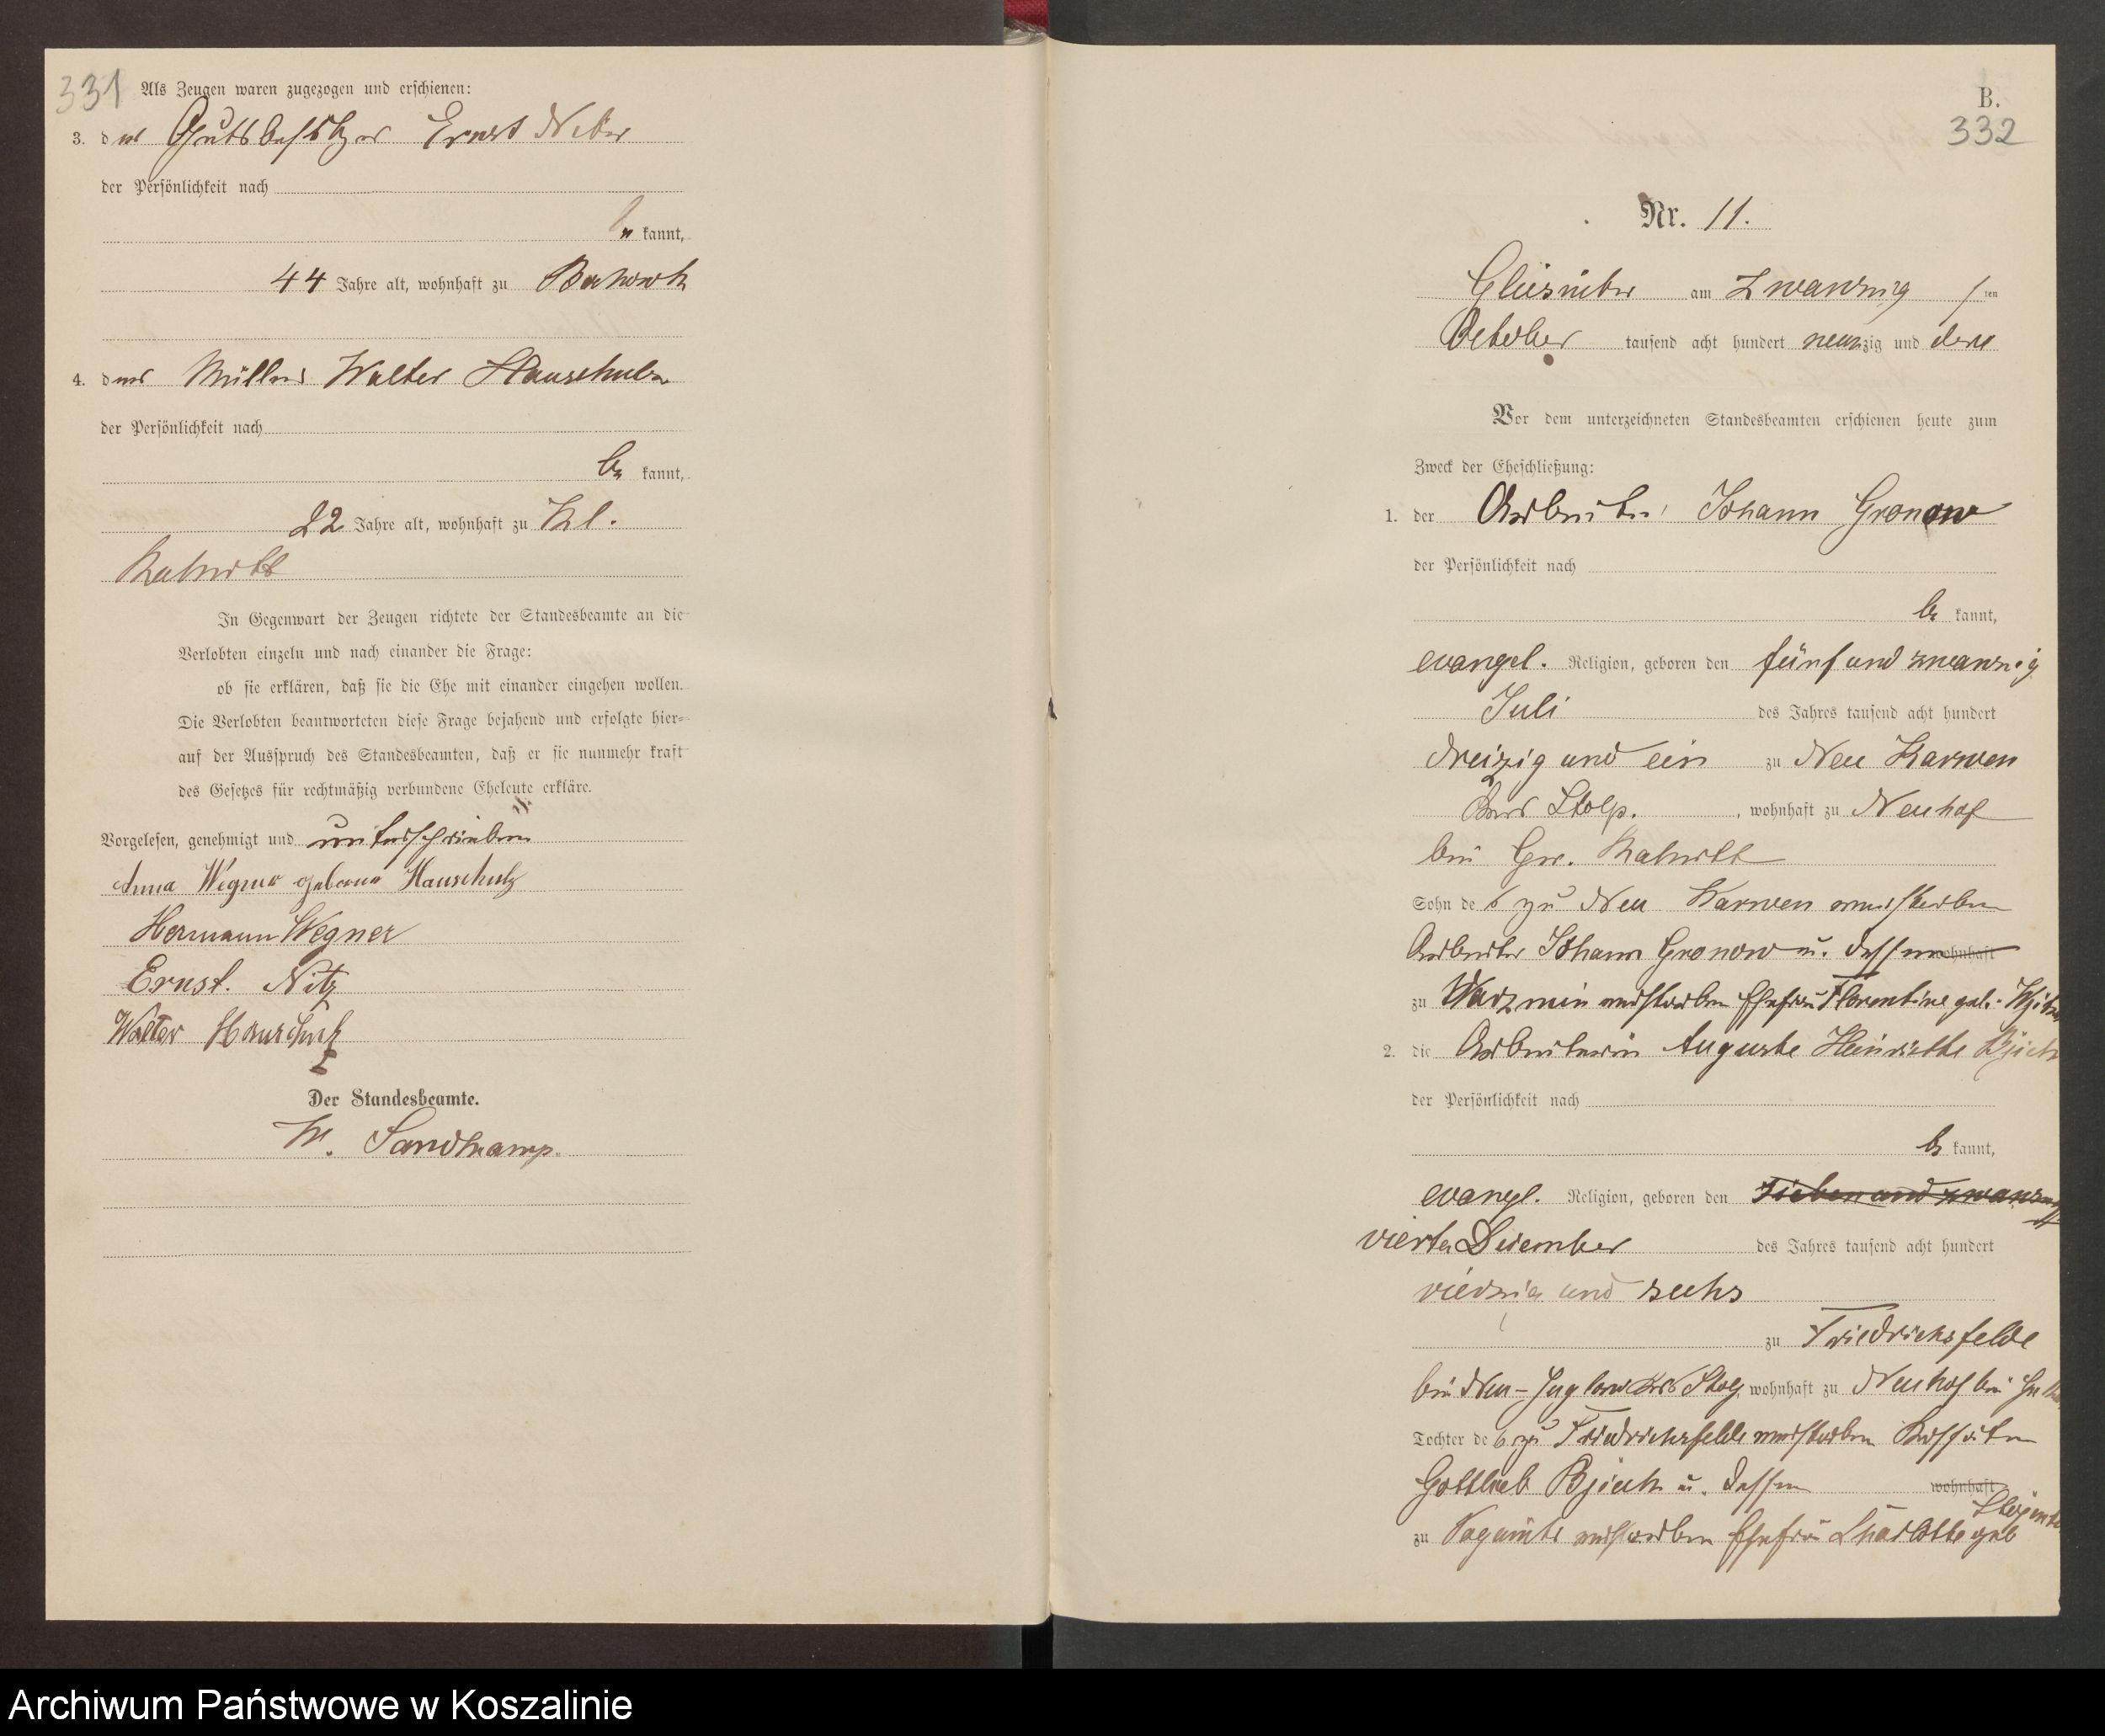 331
Als Zeugen waren zugezogen und erschienen:
3. der Gutsbesitzer Ernst
der Persönlichkeit nach
be kannt,
44 Jahre alt, wohnhaft zu
4. der Müller Walter Hauschulz
der Persönlichkeit nach
be kannt,
22 Jahre alt, wohnhaft zu Kl.
In Gegenwart der Zeugen richtete der Standesbeamte an die
Verlobten einzeln und nach einander die Frage:
ob sie erklären, daß sie die Ehe mit einander eingehen wollen.
Die Verlobten beantworteten diese Frage bejahend und erfolgte hier-
auf der Ausspruch des Standesbeamten, daß er sie nunmehr kraft
des Gesetzes für rechtmäßig verbundene Eheleute erkläre.
Vorgelesen, genehmigt und unterschrieben
Anna Wegner geborene Hauschulz
Hermann Wegner
Ernst. Nitz
Walter Hauschulz
Der Standesbeamte.
W. Sandkamp.
B.
332
Nr. 11.
Glüsnitz am zwanzig ten
October tausend acht hundert neunzig und drei
Vor dem unterzeichneten Standesbeamten erschienen heute zum
Zweck der Eheschließung:
1. der Arbeiter Johann Gronow
der Persönlichkeit nach
be kannt,
evangel. Religion, geboren den fünf und zwanzig
Juli des Jahres tausend acht hundert
dreizig und ein zu Neu Karwen
Kreis Stolp. , wohnhaft zu Neuhof
bei Gr.
Sohn des zu Neu Karwen verstorbenen
Arbeiter Johann Gronow u. dessen wohnhaft
zu verstorbenen Ehefrau Florentine geb.
2. die Arbeiterin Auguste Heinriette
der Persönlichkeit nach
be kannt,
evangl. Religion, geboren den Sieben und zwanzig
vierten December des Jahres tausend acht hundert
vierzig und sechs
zu Friedrichsfelde
bei Neu- Kreis Stolp, wohnhaft zu Neuhof bei
Tochter des zu Friedrichsfelde verstorbenen Kossäten
Gottlieb u. dessen wohnhaft
zu verstorbenen Ehefrau Charlotte geb